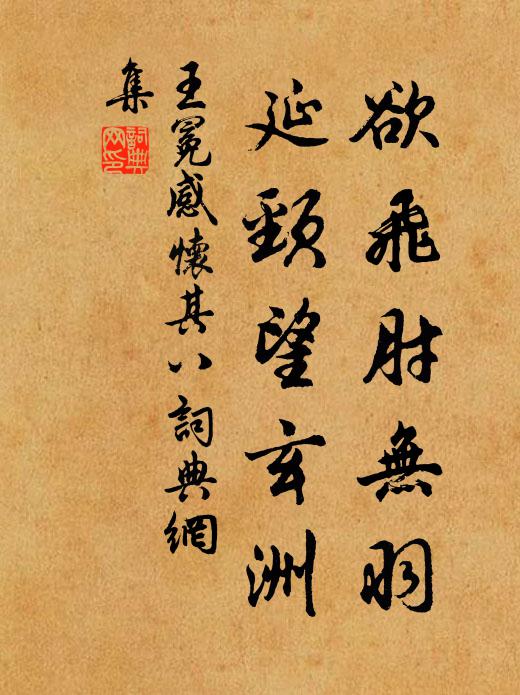 欲飛肘無羽
延頸望玄洲
王冕感懷其八詞典網
集
詞典
网印